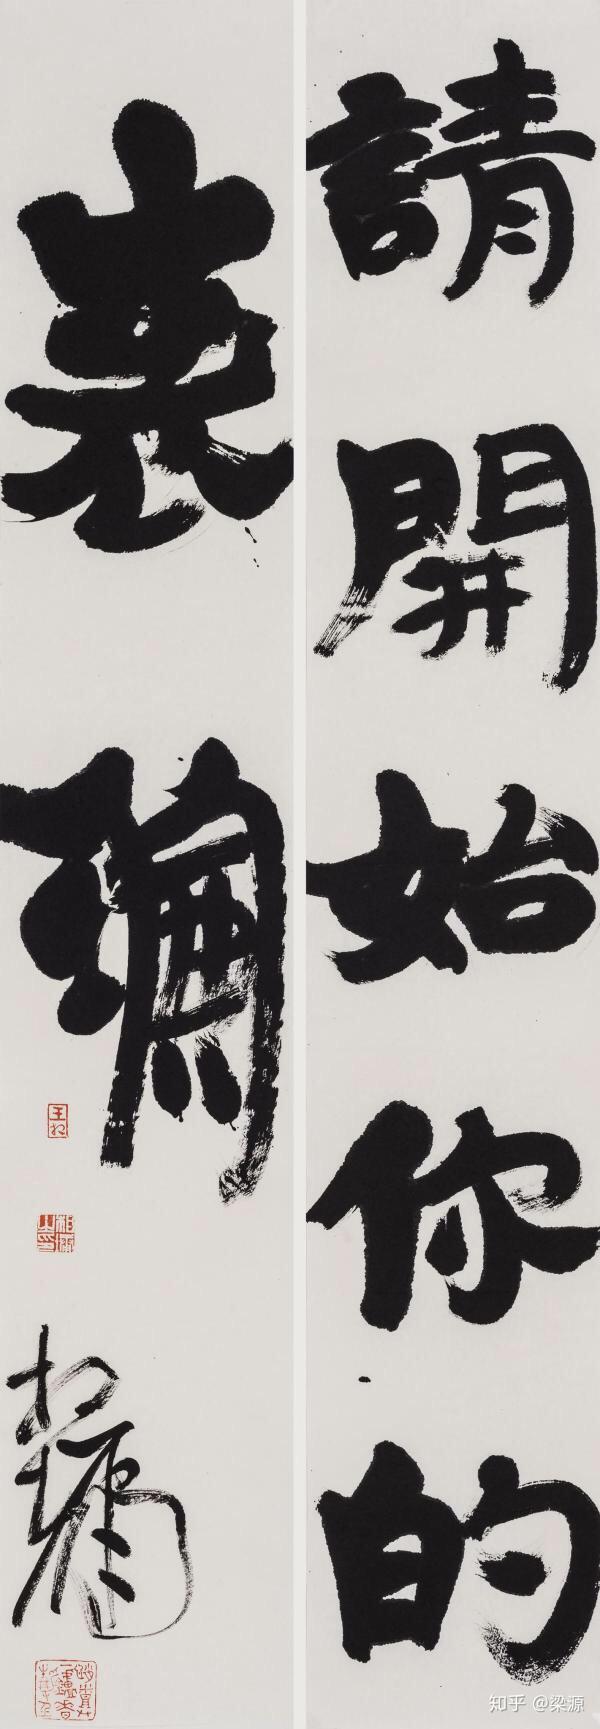 請開始你的
表演
知乎 @梁源